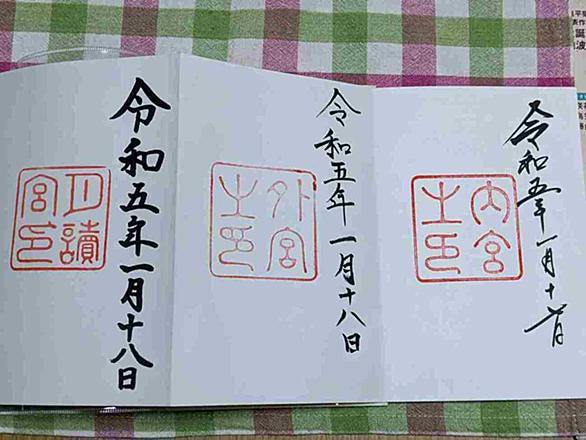 令和五年一月十八日
内宮
之印
令和五年一月十八日
外宮
之印
令和五年一月十八日
月讀
宮印